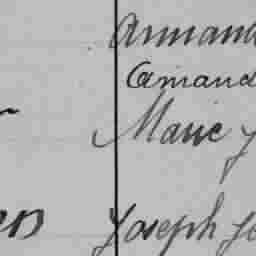 Armand
Amand
Marie J
Joseph Je